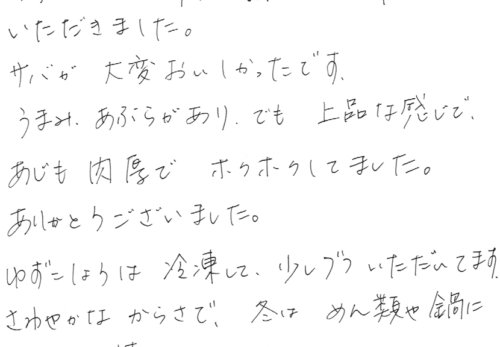 いただきました。
サバが 大変おいしかったです。
うまみ、あぶらがあり、でも 上品な感じで、
あじも 肉厚で ホクホクしてました。
ありがとうございました。
ゆずこしょうは 冷凍して、少しづつ いただいてます。
さわやかな からさで、冬は めん類や鍋に